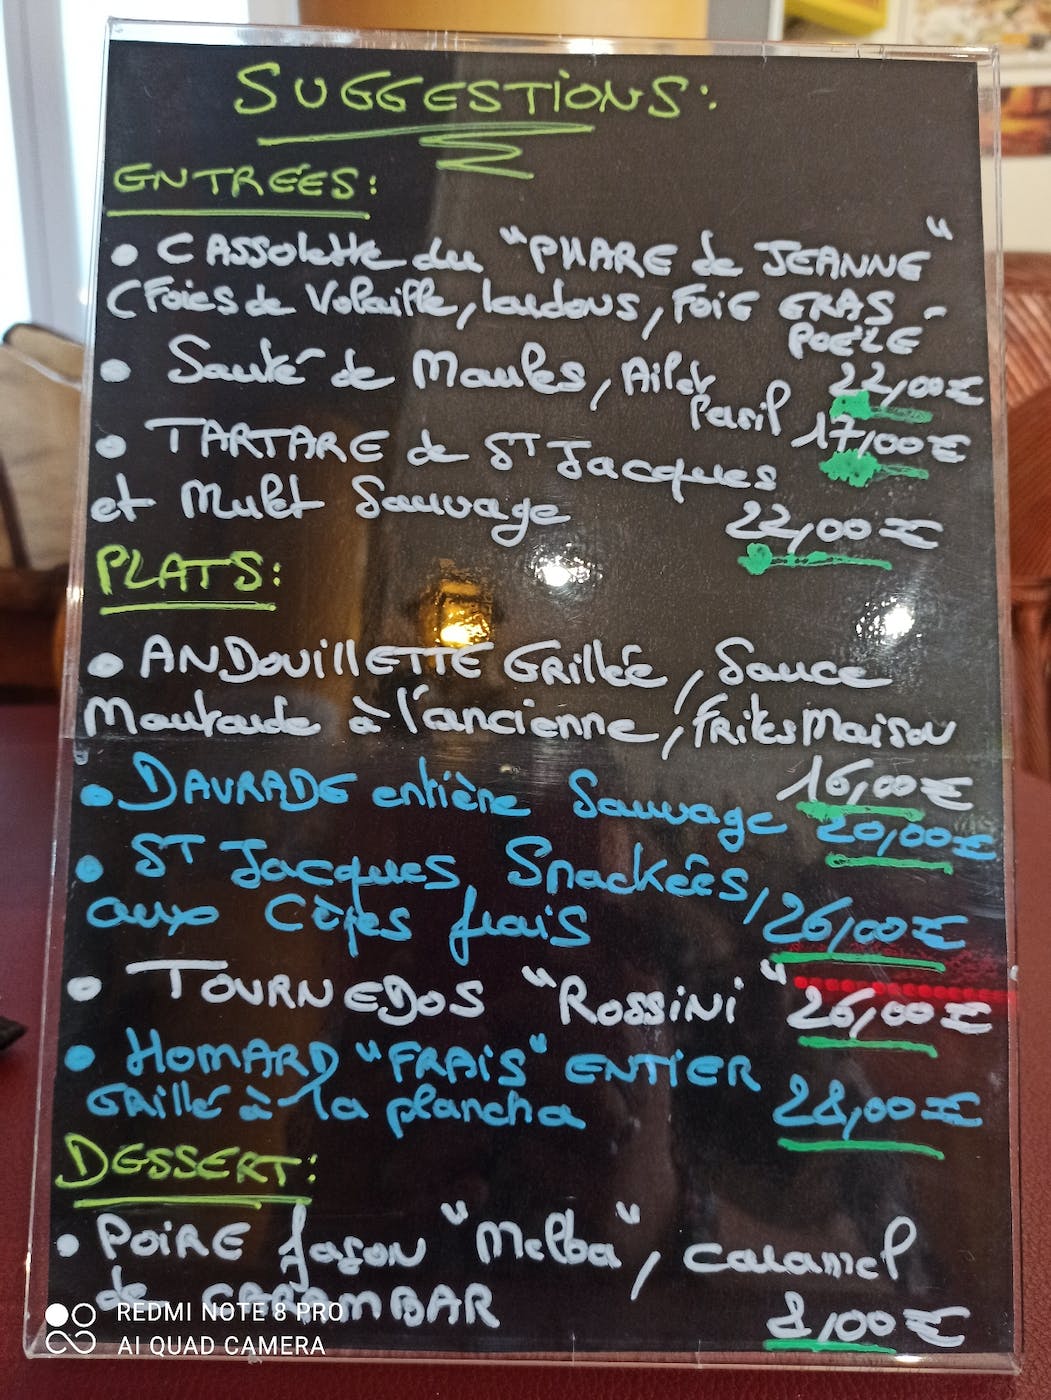 SUGGESTIONS:
ENTRÉES:
• CASSOLETTE du "PHARE de JEANNE"
(Foies de Volaille, lardons, FOIE GRAS
POËLÉ
• Sauté de Moules, Ail et
Persil
22,00€
17,00€
• TARTARE de ST Jacques
et Mulet Sauvage
22,00€
PLATS:
• ANDouillETTE Grillée, Sauce
Moutarde à l'ancienne, FritesMaison
16,00€
• DAURADE entière Sauvage 20,00€
• ST Jacques, Snackées,
aux Cèpes frais 26,00€
• TOURNEDOS "ROSSiNi" 26,00€
• HOMARD "FRAIS" ENTIER
GRillé à la plancha 28,00€
DESSERT:
• POIRE façon "Melba", caramel
de CARAMBAR
8,00€
REDMI NOTE 8 PRO
AI QUAD CAMERA